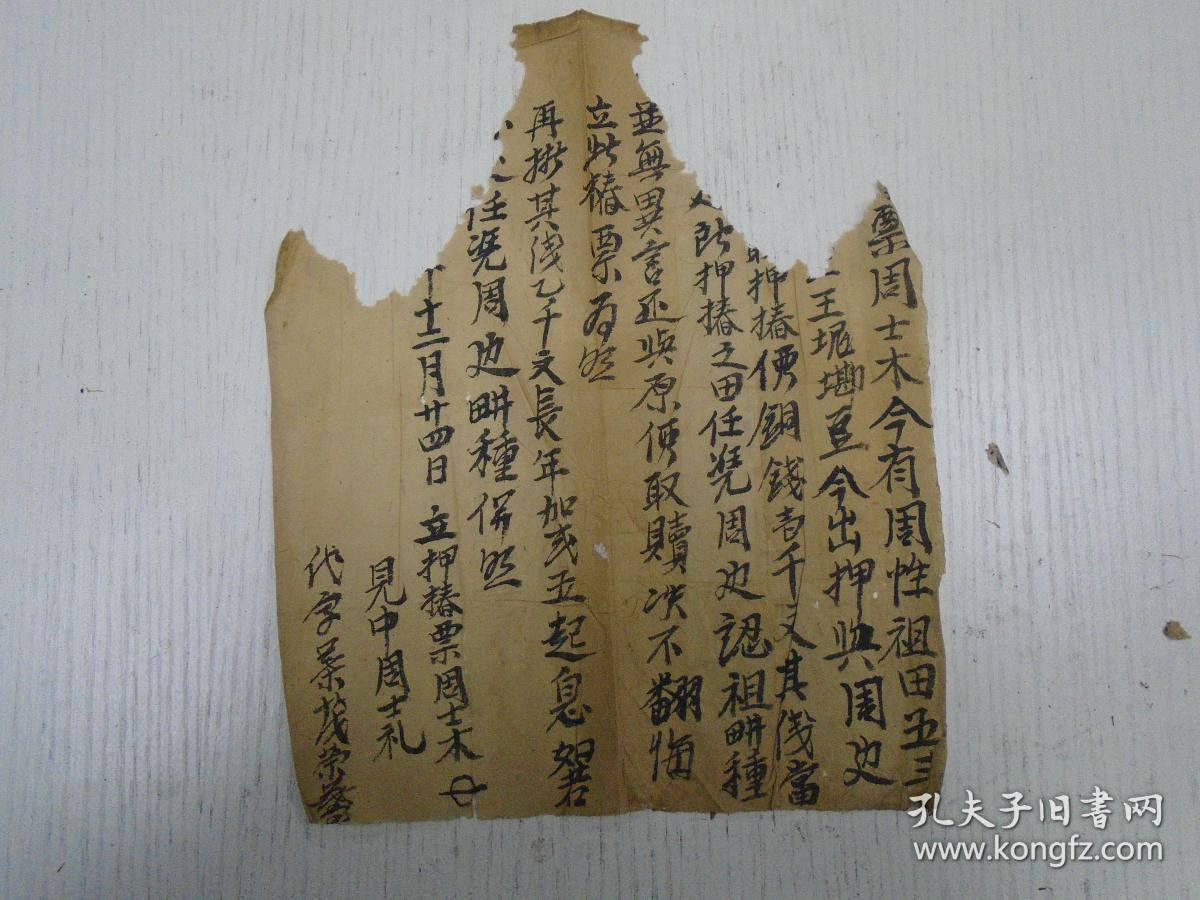 票周士木今有周性祖田五三
王坭墈豆今出押與周边
押樁便銅錢壹千文其伐當
人所押樁之田任凴周边認祖畊種
並無異言还與原便取贖决不翻悔
立此樁票為照
再批其伐乙千文長年加弍五起息如若
任凴周边畊種併照
十二月廿四日立押樁票周士木
見中周士礼
代字葉茂荣
孔夫子旧书网
www.kongfz.com